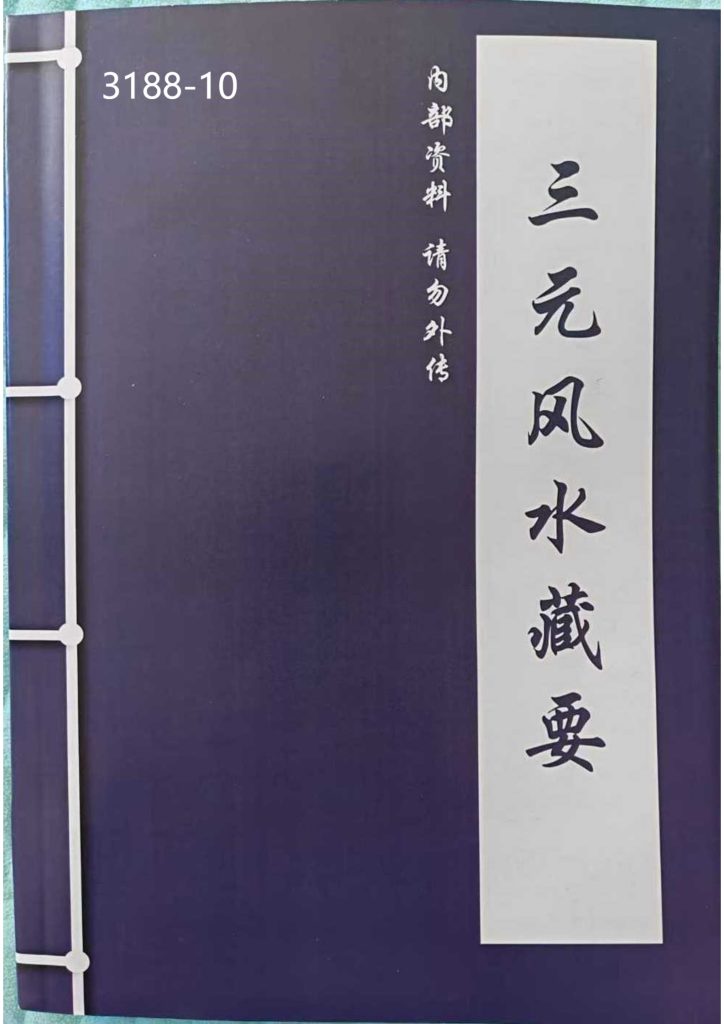 3188-10
三元风水藏要
内部资料 请勿外传